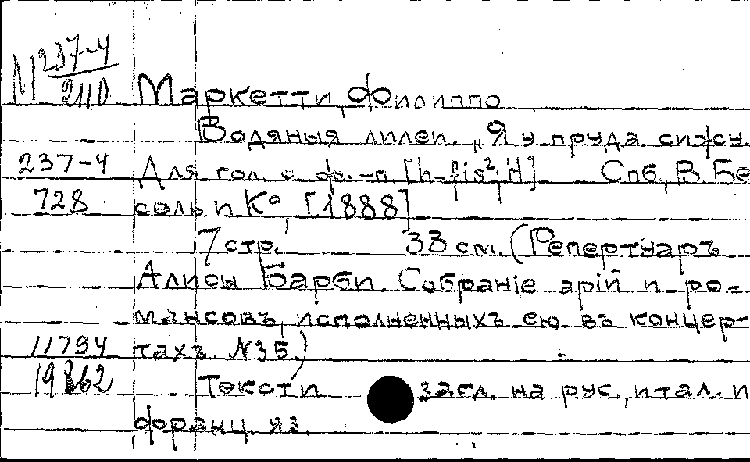 М 237-4
2110
Маркетти, Филиппо
Водяныя лилеи. „Я у пруда сижу.
237-4 Для гол. с ф.-п. [h-fis², H] Спб, В. Бе
728 сель и К°, [1888]
7 стр. 33 см. (Репертуаръ
Алисы Барби. Собранiе арiй и ро-
мансовъ, исполненныхъ ею въ концер-
11794 тахъ. №35.)
19862 Текст и загл. на рус., итал. и
франц. яз.